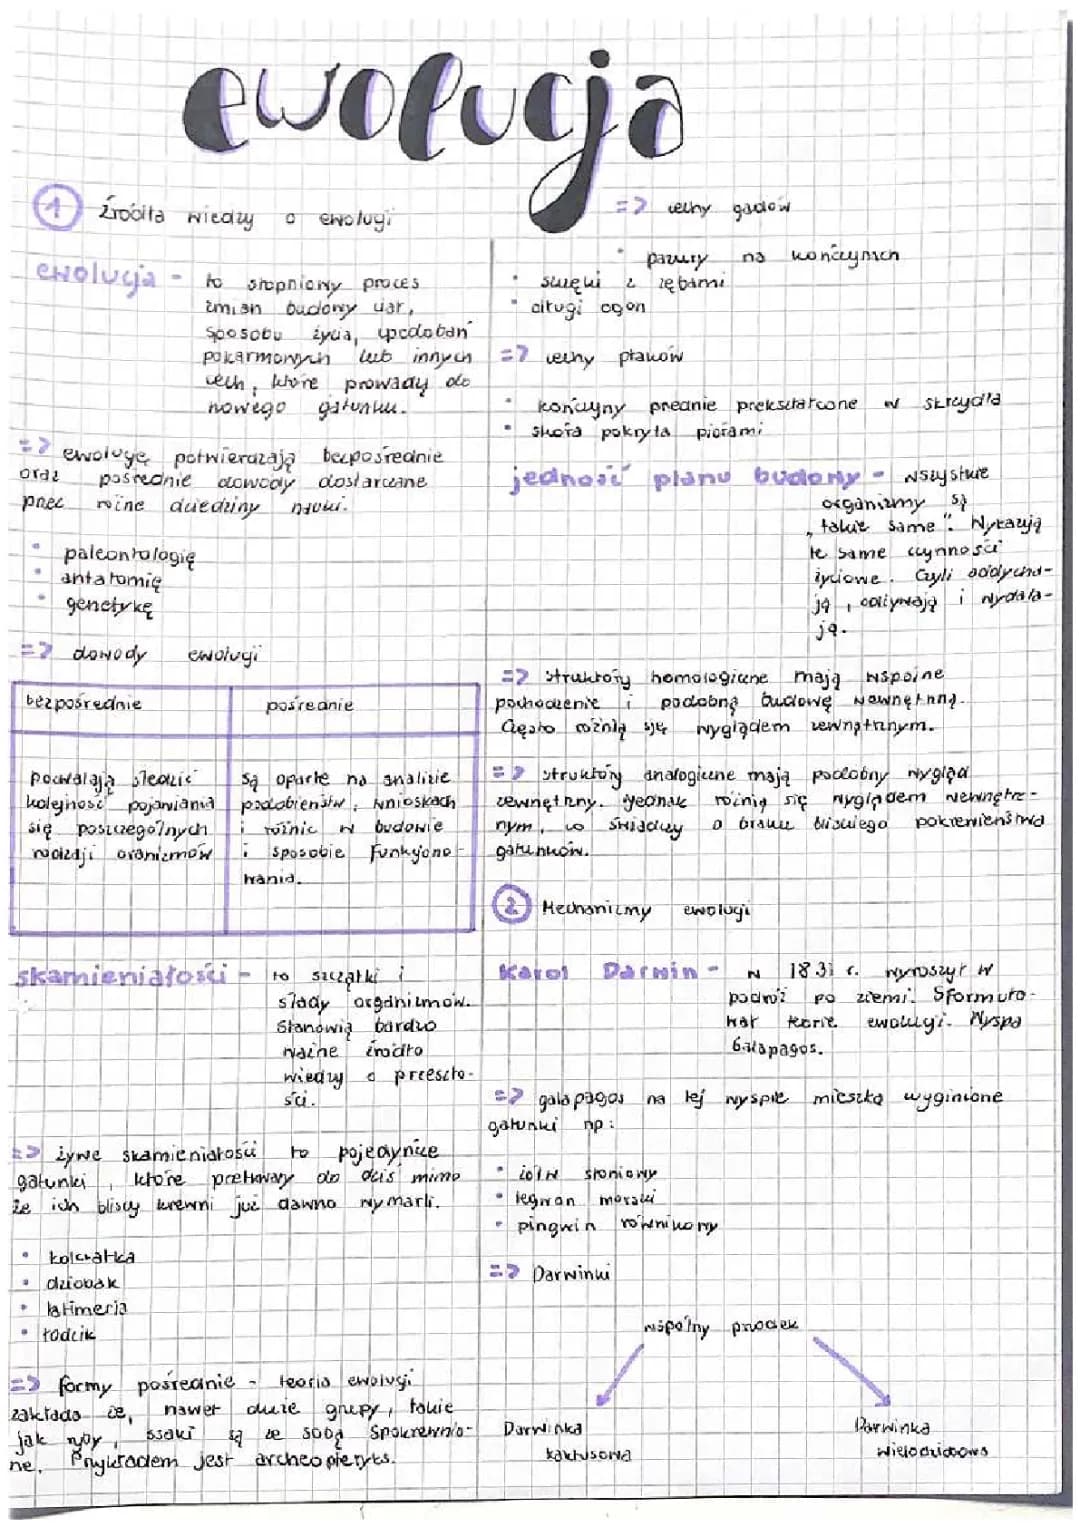 ewolucja
1 źródła wiedzy o ewolucji
ewolucja - to stopniowy proces
zmian budowy ciał,
sposobu życia, upodobań
pokarmowych lub innych
cech, które prowadzą do
nowego gatunku.
=> ewolucję potwierdzają bezpośrednie
oraz pośrednie dowody dostarczane
przez różne dziedziny nauki.
• paleontologię
• antatomię
• genetykę
=> dowody ewolucji
bezpośrednie pośrednie
pozwalają śledzić
kolejność pojawiania
się poszczególnych
rodzaji oranizmów
są oparte na analizie
podobieństw, wnioskach
i różnic w budowie
i sposobie funkcjono-
wania.
skamieniałości - to szczątki i
ślady organizmów.
Stanowią bardzo
ważne źródło
wiedzy o przeszło-
ści.
=> żywe skamieniałości to pojedyncze
gatunki, które przetrwały do dziś mimo
że ich bliscy krewni już dawno wymarli.
• kolczatka
• dziobak
• latimeria
• łodzik
=> formy pośrednie - teoria ewolucji
zakłada że, nawet duże grupy, takie
jak ryby, ssaki są ze sobą spokrewnio-
ne. Przykładem jest archeopteryks.
=> cechy gadów
• pazury na kończynach
• szczęki z zębami
• długi ogon
=> cechy ptaków
• kończyny przednie przekształcone w skrzydła
• skóra pokryta piórami
jedność planu budowy - wszystkie
organizmy są
„takie same". Wykazują
te same czynności
życiowe. Czyli oddycha-
ją, odżywają i wydala-
ją.
=> struktury homologiczne mają wspólne
pochodzenie i podobną budowę wewnętrzną.
Często różnią się wyglądem zewnątrznym.
=> struktury analogiczne mają podobny wygląd
zewnętrzny. Jednak różnią się wyglądem wewnętrz-
nym, co świadczy o braku bliskiego pokrewieństwa
gatunków.
2 Mechanizmy ewolucji
Karol Darwin - w 1831 r. wyruszył w
podróż po ziemi. Sformuło-
wał teorie ewolucji. Wyspa
Galapagos.
=> galapagos na tej wyspie mieszka wyginione
gatunki np:
• żółw słoniowy
• legwan morski
• pingwin równikowy
=> Darwinki
wspólny przodek
Darwinka
kaktusowa
Darwinka
wielodziobowa